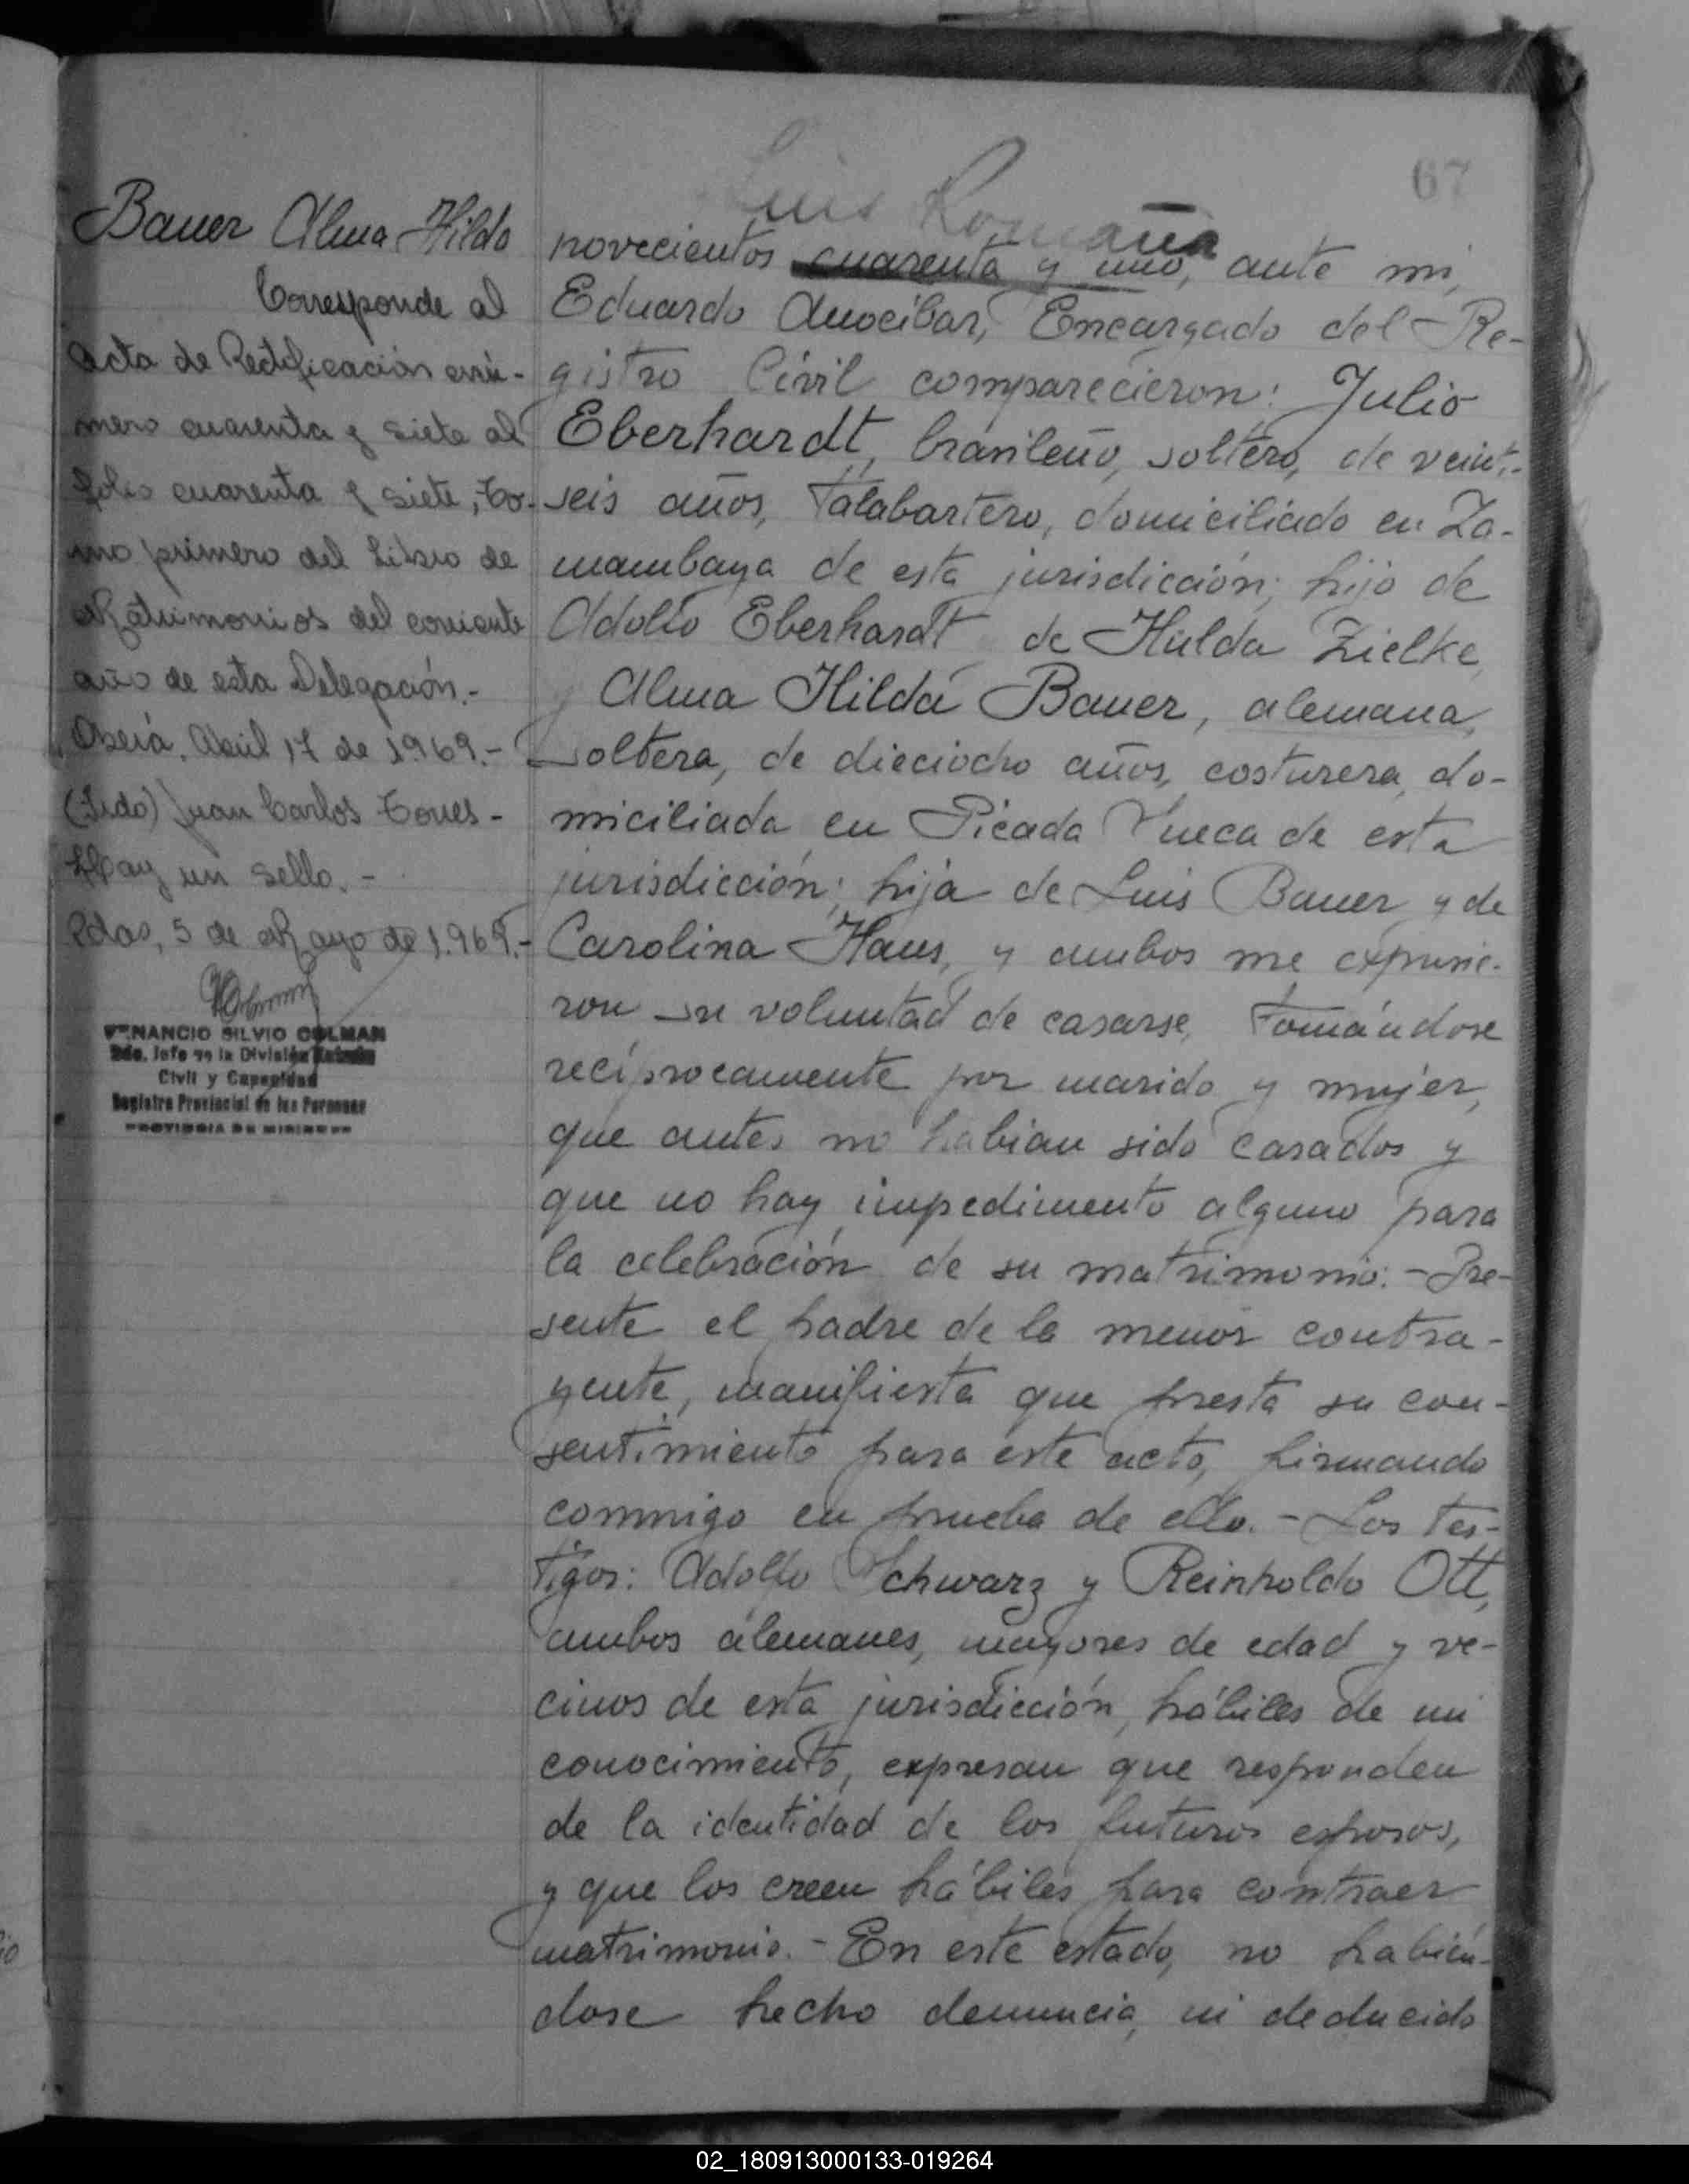 67
Luis Romaña
Bauer Alma Hilda
Corresponde al
Acta de Rectificación nú-
mero cuarenta y siete al
folio cuarenta y siete, To-
mo primero del Libro de
Matrimonios del corriente
año de esta Delegación.-
Oberá, Abril 17 de 1.969.-
(Fdo) Juan Carlos Torres-
Hay un sello.-
Pdas, 5 de Mayo de 1.969.-
VENANCIO SILVIO COLMAN
Jefe de la División Estado
Civil y Capacidad
Registro Provincial de las Personas
PROVINCIA DE MISIONES
novecientos cuarenta y uno, ante mi,
Eduardo Anocibar, Encargado del Re-
gistro Civil comparecieron: Julio
Eberhardt, brasileño, soltero, de veinti-
seis años, talabartero, domiciliado en Za-
mambaya de esta jurisdicción; hijo de
Adolfo Eberhardt de Hulda Zielke,
y Alma Hilda Bauer, alemana,
soltera, de dieciocho años, costurera, do-
miciliada en Picada Yueca de esta
jurisdicción; hija de Luis Bauer y de
Carolina Haus, y ambos me expusie-
ron su voluntad de casarse, tomándose
recíprocamente por marido y mujer,
que antes no habian sido casados y
que no hay impedimento alguno para
la celebración de su matrimonio.- Pre-
sente el padre de la menor contra-
yente, manifiesta que presta su con-
sentimiento para este acto, firmando
conmigo en prueba de ello.- Los tes-
tigos: Adolfo Schwarz y Reinholdo Ott,
ambos alemanes, mayores de edad y ve-
cinos de esta jurisdicción, hábiles de mi
conocimiento, expresan que responden
de la identidad de los futuros esposos,
y que los creen hábiles para contraer
matrimonio.- En este estado, no habién-
dose hecho denuncia, ni deducido
02_180913000133-019264